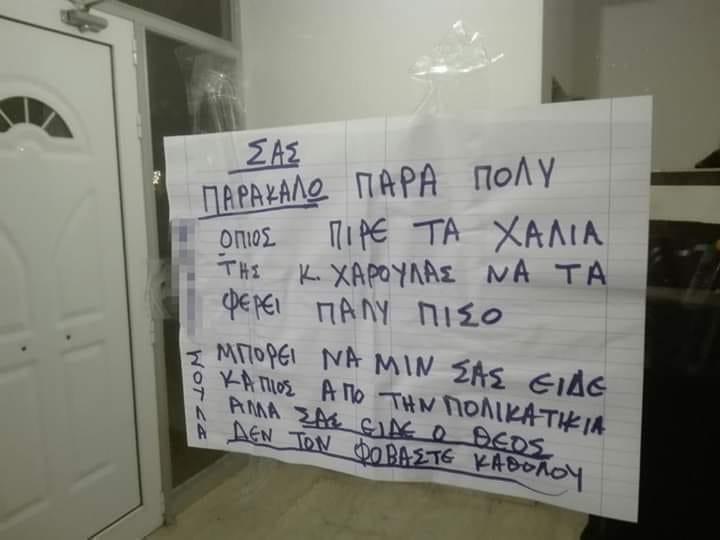 ΣΑΣ
ΠΑΡΑΚΑΛΟ ΠΑΡΑ ΠΟΛΥ
ΟΠΙΟΣ ΠΙΡΕ ΤΑ ΧΑΛΙΑ
ΤΗΣ Κ. ΧΑΡΟΥΛΑΣ ΝΑ ΤΑ
ΦΕΡΕΙ ΠΑΛΥ ΠΙΣΟ
ΜΠΟΡΕΙ ΝΑ ΜΙΝ ΣΑΣ ΕΙΔΕ
ΚΑΠΙΟΣ ΑΠΟ ΤΗΝ ΠΟΛΙΚΑΤΙΚΙΑ
ΑΛΛΑ ΣΑΣ ΕΙΔΕ Ο ΘΕΟΣ
ΔΕΝ ΤΟΝ ΦΟΒΑΣΤΕ ΚΑΘΟΛΟΥ
ΣΟΥΛΑ